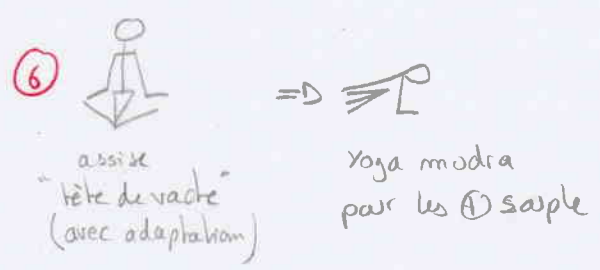 6
=D
assise
"tête de vache"
(avec adaptation)
Yoga mudra
pour les ⊕ souple